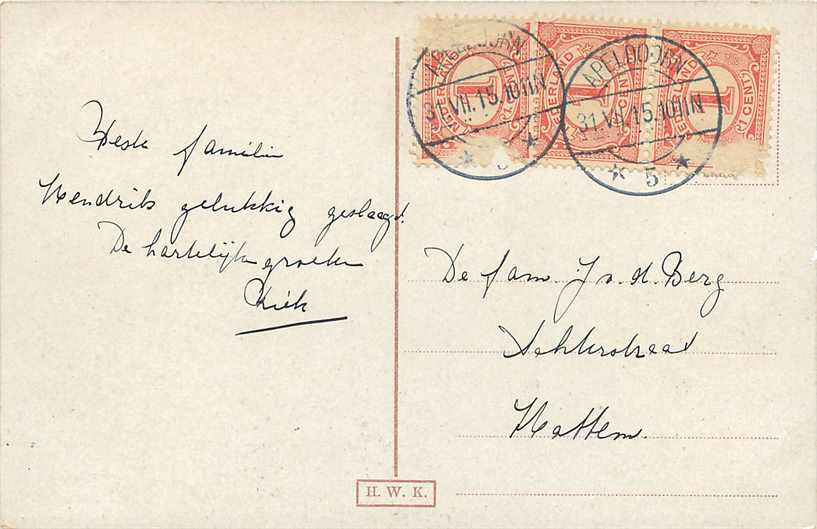 Beste familie
Hendrik gelukkig geslaagd.
De hartelijke groeten
Kiek
APELDOORN
31.VII.15.10-11N
5
APELDOORN
31.VII.15.10-11N
5
NEDERLAND
1
1 CENT
NEDERLAND
1
1 CENT
NEDERLAND
1
1 CENT
De fam. J. v. d. Berg
Achterstraat
Hattem.
H. W. K.